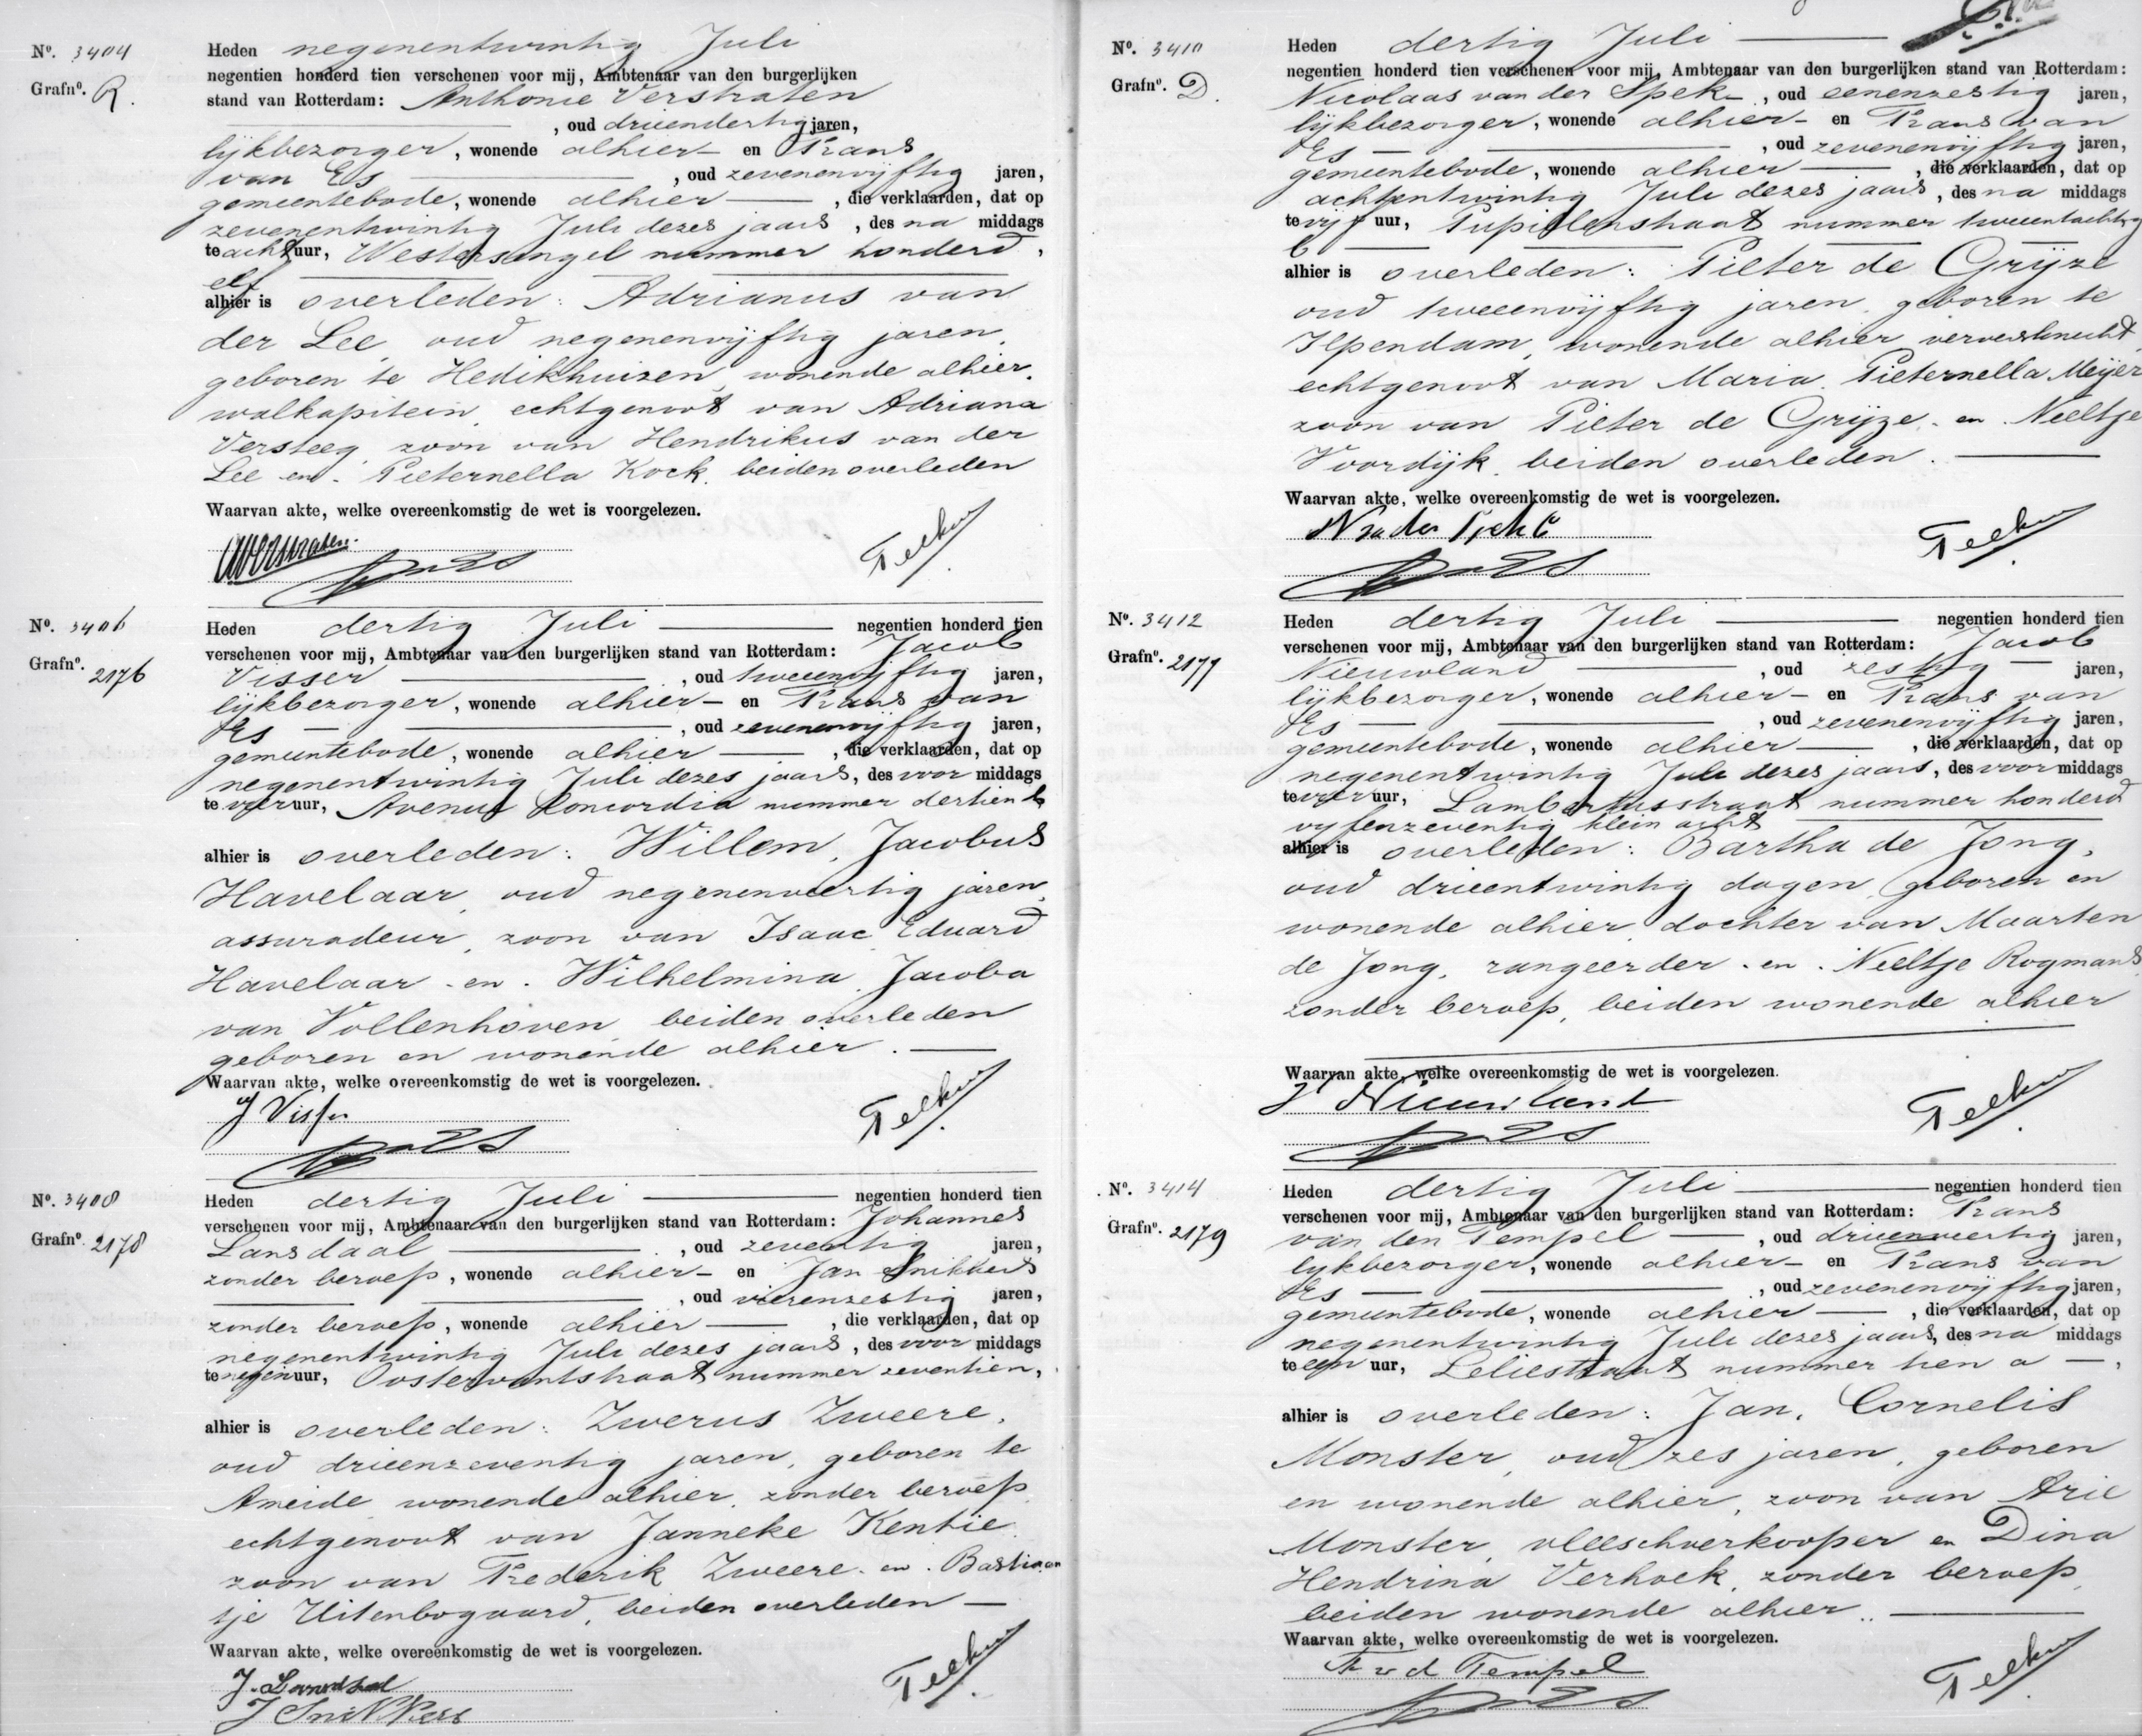 No. 3404
Grafno. R.
Heden negenentwintig Juli
negentien honderd tien verschenen voor mij, Ambtenaar van den burgerlijken
stand van Rotterdam: Anthonie Verstraten
, oud drieendertig jaren,
lijkbezorger, wonende alhier en Frans
van Es , oud zevenenvijftig jaren,
gemeentebode, wonende alhier , die verklaarden, dat op
zevenentwintig Juli dezes jaars , des na middags
te acht uur, Westersingel nummer honderd ,
elf
alhier is overleden: Adrianus van
der Lee, oud negenenvijftig jaren,
geboren te Hedikhuizen, wonende alhier,
walkapitein, echtgenoot van Adriana
Versteeg, zoon van Hendrikus van der
Lee en Pieternella Kock, beiden overleden
Waarvan akte, welke overeenkomstig de wet is voorgelezen.
AVerstraten.
No. 3406
Grafno. 2176
Heden dertig Juli negentien honderd tien
verschenen voor mij, Ambtenaar van den burgerlijken stand van Rotterdam: Jacob
Visser , oud tweeenvijftig jaren,
lijkbezorger, wonende alhier en Frans van
Es , oud zevenenvijftig jaren,
gemeentebode, wonende alhier , die verklaarden, dat op
negenentwintig Juli dezes jaars, des voor middags
te vier uur, Avenue Concordia nummer dertien b
alhier is overleden: Willem, Jacobus
Havelaar, oud negenenveertig jaren,
assuradeur, zoon van Isaac Eduard
Havelaar en Wilhelmina, Jacoba
van Vollenhoven, beiden overleden
geboren en wonende alhier.
Waarvan akte, welke overeenkomstig de wet is voorgelezen.
J Visser
No. 3408
Grafno. 2178
Heden dertig Juli negentien honderd tien
verschenen voor mij, Ambtenaar van den burgerlijken stand van Rotterdam: Johannes
Lansdaal , oud zeventig jaren,
zonder beroep, wonende alhier en Jan Snikkers
, oud vierenzestig jaren,
zonder beroep, wonende alhier , die verklaarden, dat op
negenentwintig Juli dezes jaars, des voor middags
te negen uur, Oostervantstraat nummer zeventien,
alhier is overleden: Zwerus Zweere,
oud drieenzeventig jaren, geboren te
Ameide, wonende alhier, zonder beroep,
echtgenoot van Janneke Kentie,
zoon van Frederik Zweere en Bastiaan
tje Uitenbogaard, beiden overleden
Waarvan akte, welke overeenkomstig de wet is voorgelezen.
J. Lansdaal
J Snikkers
No. 3410
Grafno. D.
Heden dertig Juli
negentien honderd tien verschenen voor mij, Ambtenaar van den burgerlijken stand van Rotterdam:
Nicolaas van der Spek , oud eenenzestig jaren,
lijkbezorger, wonende alhier en Frans van
Es , oud zevenenvijftig jaren,
gemeentebode, wonende alhier , die verklaarden, dat op
achtentwintig Juli dezes jaars, des na middags
te vijf uur, Pupillenstraat nummer tweeentachtig
b
alhier is overleden: Pieter de Grijze
oud tweeenvijftig jaren, geboren te
Ilpendam, wonende alhier, ververskneckt,
echtgenoot van Maria, Pieternella Meijer
zoon van Pieter de Grijze en Neeltje
Voordijk, beiden overleden.
Waarvan akte, welke overeenkomstig de wet is voorgelezen.
No. 3412
Grafno. 2177
Heden dertig Juli negentien honderd tien
verschenen voor mij, Ambtenaar van den burgerlijken stand van Rotterdam: Jacob
Nieuwland , oud zestig jaren,
lijkbezorger, wonende alhier en Frans van
Es , oud zevenenvijftig jaren,
gemeentebode, wonende alhier , die verklaarden, dat op
negenentwintig Juli dezes jaars, des voor middags
te vier uur, Lambertusstraat nummer honderd
vijfenzeventig klein acht
alhier is overleden: Bartha de Jong,
oud drieentwintig dagen, geboren en
wonende alhier, dochter van Maarten
de Jong, rangeerder en Neeltje Rogmans,
zonder beroep, beiden wonende alhier
Waarvan akte, welke overeenkomstig de wet is voorgelezen.
J Nieuwland
No. 3414
Grafno. 2179
Heden dertig Juli negentien honderd tien
verschenen voor mij, Ambtenaar van den burgerlijken stand van Rotterdam: Frans
van den Tempel , oud drieenveertig jaren,
lijkbezorger, wonende alhier en Frans van
Es , oud zevenenvijftig jaren,
gemeentebode, wonende alhier , die verklaarden, dat op
negenentwintig Juli dezes jaars, des na middags
te een uur, Leliestraat nummer tien a ,
alhier is overleden: Jan, Cornelis
Monster, oud zes jaren, geboren
en wonende alhier, zoon van Arie
Monster, vleeschverkooper en Dina
Hendrina Verhoek, zonder beroep,
beiden wonende alhier.
Waarvan akte, welke overeenkomstig de wet is voorgelezen.
F v d Tempel